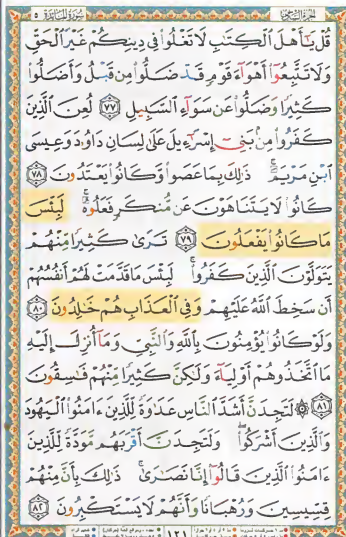 الجزء السادس
سورة المائدة ٥
قُلْ يَٰٓأَهْلَ ٱلْكِتَٰبِ لَا تَغْلُوا۟ فِى دِينِكُمْ غَيْرَ ٱلْحَقِّ
وَلَا تَتَّبِعُوٓا۟ أَهْوَآءَ قَوْمٍ قَدْ ضَلُّوا۟ مِن قَبْلُ وَأَضَلُّوا۟
كَثِيرًا وَضَلُّوا۟ عَن سَوَآءِ ٱلسَّبِيلِ ٧٧ لُعِنَ ٱلَّذِينَ
كَفَرُوا۟ مِنۢ بَنِىٓ إِسْرَٰٓءِيلَ عَلَىٰ لِسَانِ دَاوُۥدَ وَعِيسَى
ٱبْنِ مَرْيَمَ ۚ ذَٰلِكَ بِمَا عَصَوا۟ وَّكَانُوا۟ يَعْتَدُونَ ٧٨
كَانُوا۟ لَا يَتَنَاهَوْنَ عَن مُّنكَرٍ فَعَلُوهُ ۚ لَبِئْسَ
مَا كَانُوا۟ يَفْعَلُونَ ٧٩ تَرَىٰ كَثِيرًا مِّنْهُمْ
يَتَوَلَّوْنَ ٱلَّذِينَ كَفَرُوا۟ ۚ لَبِئْسَ مَا قَدَّمَتْ لَهُمْ أَنفُسُهُمْ
أَن سَخِطَ ٱللَّهُ عَلَيْهِمْ وَفِى ٱلْعَذَابِ هُمْ خَٰلِدُونَ ٨٠
وَلَوْ كَانُوا۟ يُؤْمِنُونَ بِٱللَّهِ وَٱلنَّبِىِّ وَمَآ أُنزِلَ إِلَيْهِ
مَا ٱتَّخَذُوهُمْ أَوْلِيَآءَ وَلَٰكِنَّ كَثِيرًا مِّنْهُمْ فَٰسِقُونَ
٨١ ۞ لَتَجِدَنَّ أَشَدَّ ٱلنَّاسِ عَدَٰوَةً لِّلَّذِينَ ءَامَنُوا۟ ٱلْيَهُودَ
وَٱلَّذِينَ أَشْرَكُوا۟ ۖ وَلَتَجِدَنَّ أَقْرَبَهُم مَّوَدَّةً لِّلَّذِينَ
ءَامَنُوا۟ ٱلَّذِينَ قَالُوٓا۟ إِنَّا نَصَٰرَىٰ ۚ ذَٰلِكَ بِأَنَّ مِنْهُمْ
قِسِّيسِينَ وَرُهْبَانًا وَأَنَّهُمْ لَا يَسْتَكْبِرُونَ ٨٢
١٢١